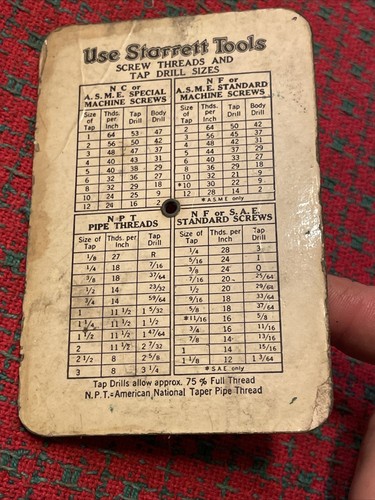 Use Starrett Tools
SCREW THREADS AND
TAP DRILL SIZES
N C or
A.S.M.E. SPECIAL
MACHINE SCREWS
Size of Tap Thds. per Inch Tap Drill Body Drill
1 64 53 47
2 56 50 42
3 48 47 37
4 40 43 31
5 40 38 29
6 32 36 27
8 32 29 18
10 24 25 9
12 24 16 2
N F or
A.S.M.E. STANDARD
MACHINE SCREWS
Size of Tap Thds. per Inch Tap Drill Body Drill
2 64 50 42
3 56 45 37
4 48 42 31
5 44 37 29
6 40 33 27
8 36 29 18
10 32 21 9
*10 30 22 9
12 28 14 2
*A.S.M.E. only
N P T
PIPE THREADS
Size of Tap Thds. per Inch Tap Drill
1/8 27 R
1/4 18 7/16
3/8 18 37/64
1/2 14 23/32
3/4 14 59/64
1 11 1/2 1 5/32
1 1/4 11 1/2 1 1/2
1 1/2 11 1/2 1 47/64
2 11 1/2 2 7/32
2 1/2 8 2 5/8
3 8 3 1/4
N F or S.A.E.
STANDARD SCREWS
Size of Tap Thds. per Inch Tap Drill
1/4 28 3
5/16 24 I
3/8 24 Q
7/16 20 25/64
1/2 20 29/64
9/16 18 33/64
5/8 18 37/64
*11/16 16 5/8
3/4 16 11/16
7/8 14 13/16
1 14 15/16
1 1/8 12 1 3/64
*S.A.E. only
Tap Drills allow approx. 75 % Full Thread
N.P.T.=American National Taper Pipe Thread